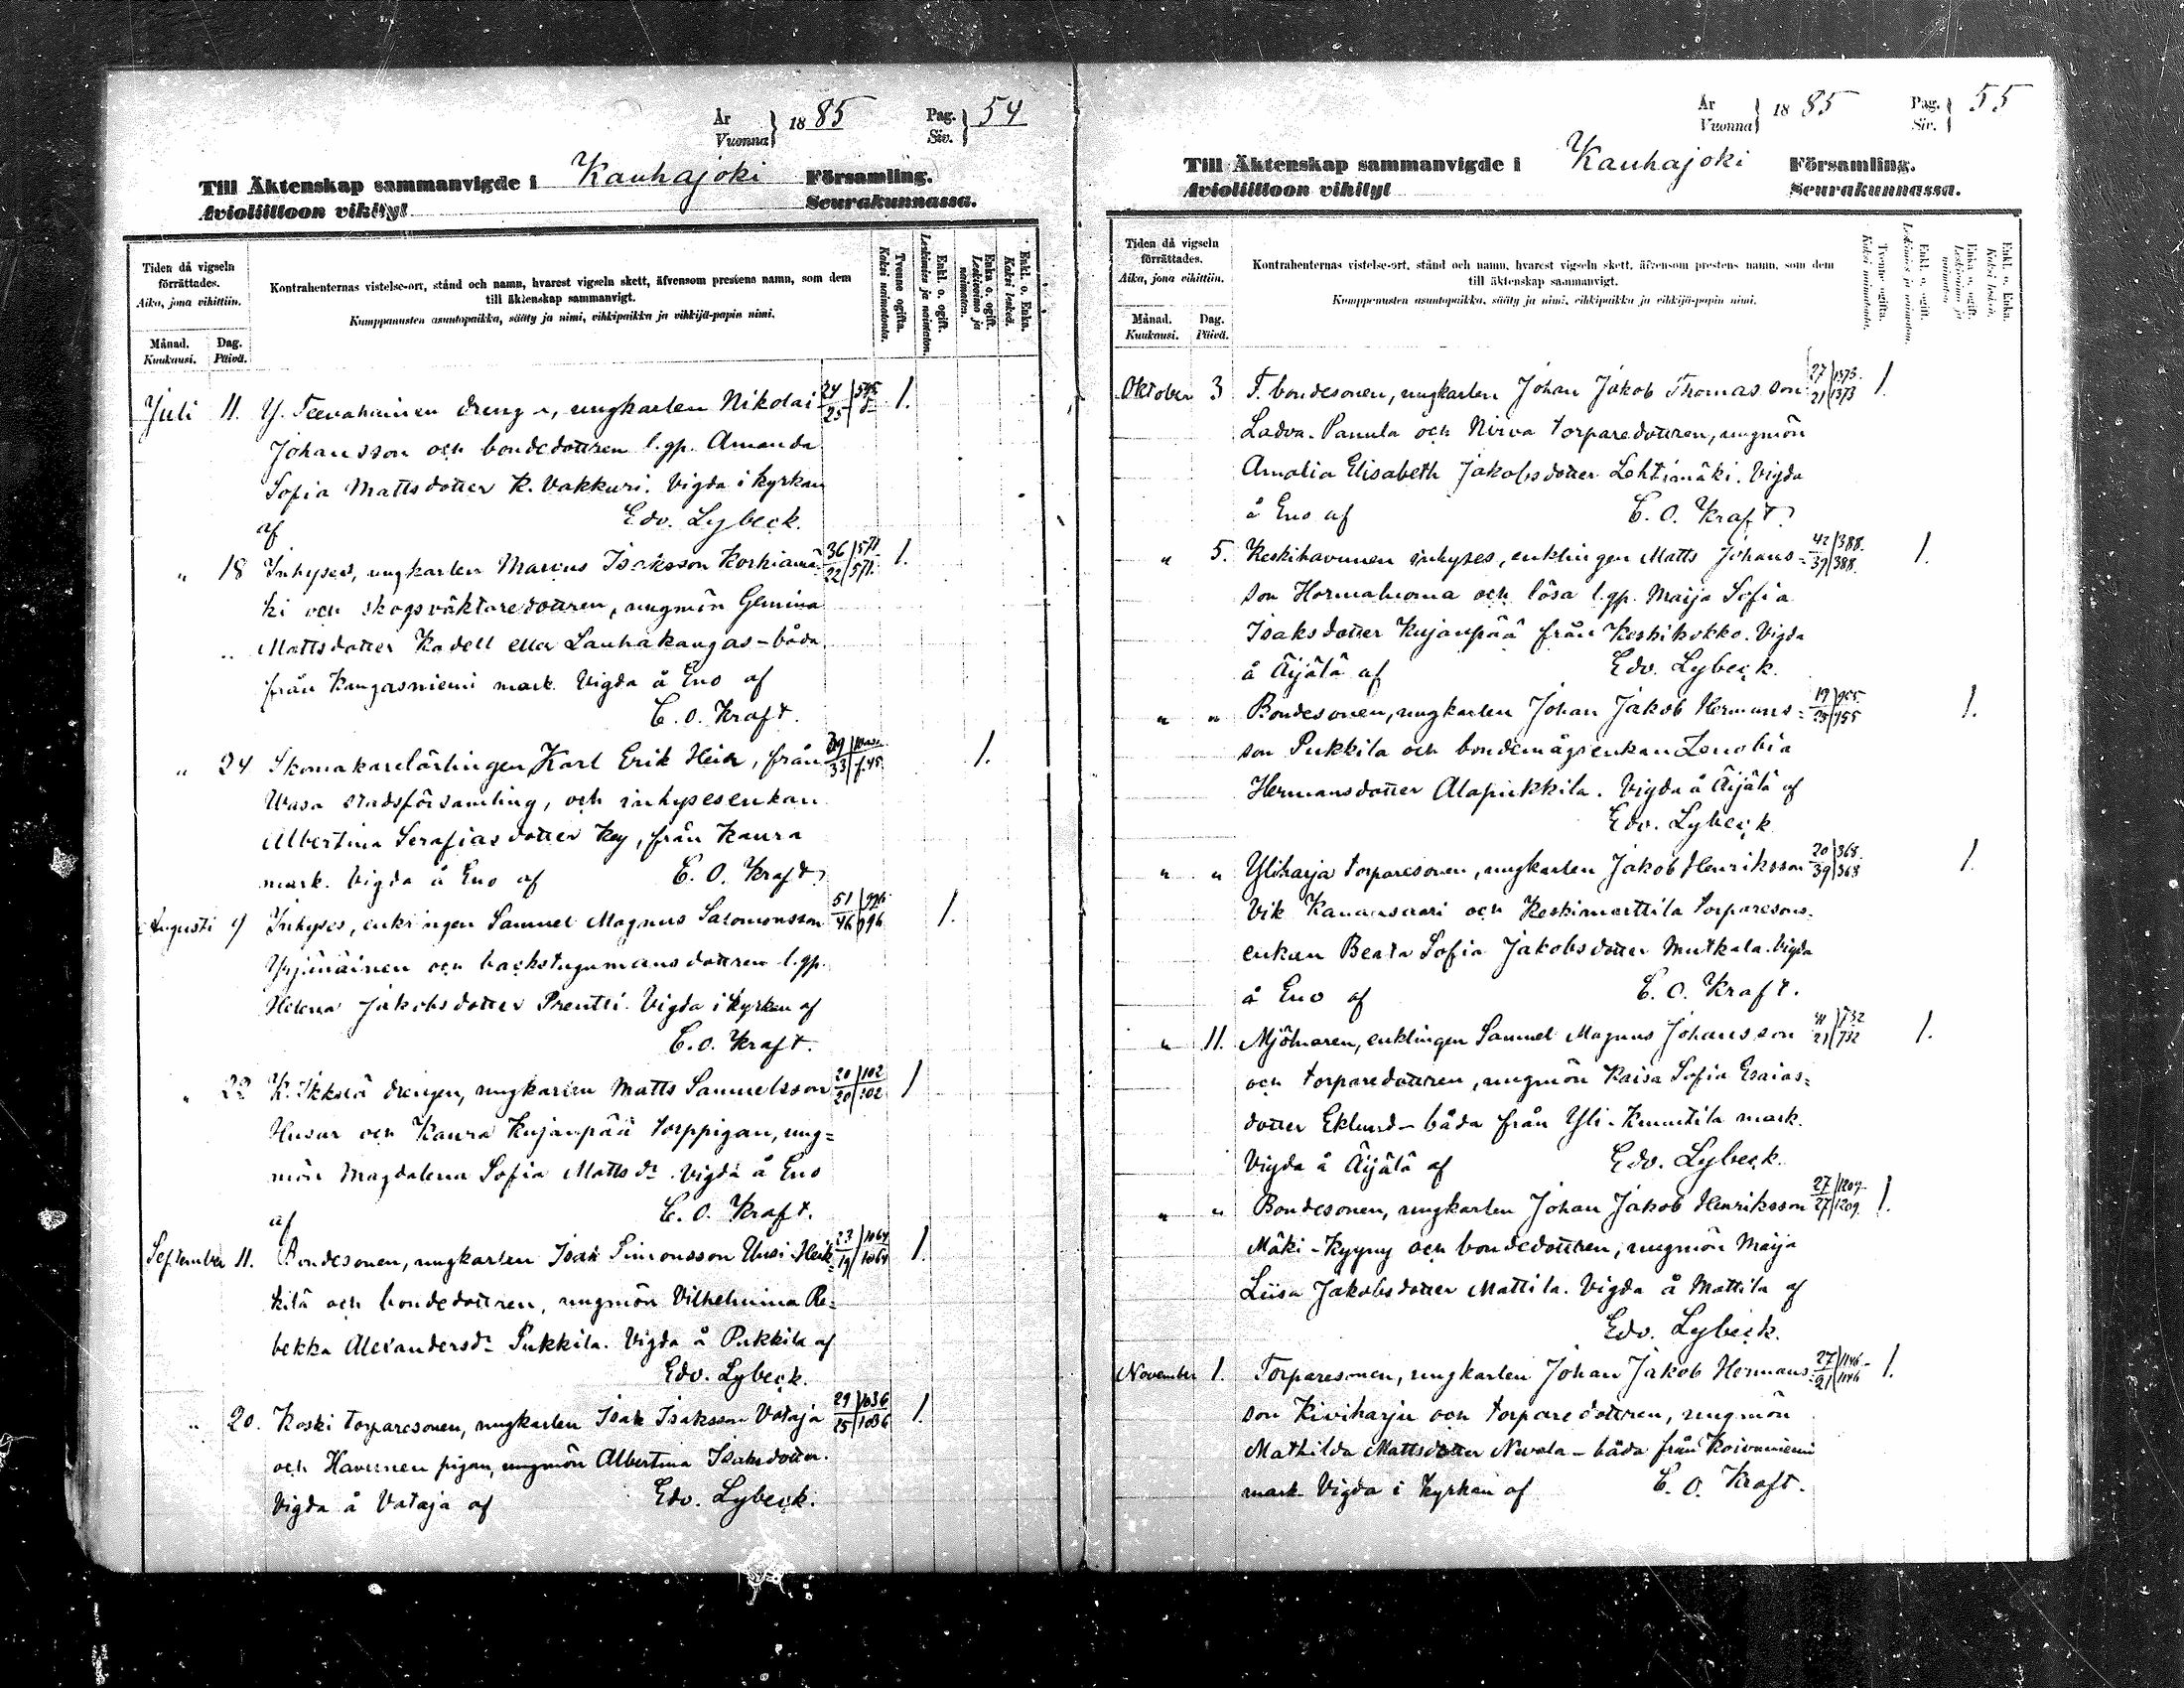 År
Vuonna} 1885 Pag.
Siv.} 54
Till Äktenskap sammanvigde i Kauhajoki Församling.
Avioliittoon vihityt Seurakunnassa.
Tiden då vigseln förrättades.
Aika, jona vihittiin.
Månad.
Kuukausi.
Dag.
Päivä.
Kontrahenternas vistelse-ort, stånd och namn, hvarest vigseln skett, äfvensom prestens namn, som dem
till äktenskap sammanvigt.
Kumppanusten asuntopaikka, sääty ja nimi, vihkipaikka ja vihkijä-papin nimi.
Tvenne ogifta.
Kaksi naimatonta.
Enkl. o. ogift.
Leskimies ja naimaton.
Enka o. ogift.
Leskivaimo ja naimaton.
Enkl. o. Enka.
Kaksi leskeä.
Juli 11. Y. Teevahainen dreng n, ungkarlen Nikolai 24 25 1.
Johansson och bondedottren l.qp. Amanda
Sofia Mattsdotter K. Vakkuri. Vigda i kyrkan
af Edv. Lybeck.
" 18 Inhyses, ungkarlen Marcus Isaksson Korkiamä- 36/571 22/571. 1.
ki och skogsväktaredottren, ungmön Gemina
Mattsdotter Kadell eller Lauhakangas - båda
från Kangasniemi mark. Vigda å Eno af
C. O. Kraft.
" 24 Skomakarelärlingen Karl Erik Hein, från 33 1.
Wasa stadsförsamling, och inhysesenkan
Albertina Serafiasdotter Key, från Kaura
mark. Vigda å Eno af C. O. Kraft.
Augusti 9 Inhyses, enklingen Samuel Magnus Salomonsson 51/996 46/996 1.
Yrjänäinen och backstugumansdottren l.qp.
Helena Jakobsdotter Prentti. Vigda i kyrkan af
C. O. Kraft.
" 22 K. Ikkelä drengen, ungkarlen Matts Samuelsson 20/102 20/102 1
Husar och Kaura Kujanpää torppigan, ung=
mön Magdalena Sofia Mattsdr. Vigda å Eno
af C. O. Kraft.
September 11. Bondesonen, ungkarlen Isak Simonsson Uusi-Heik= 23/1064 19/1064 1.
kilä och bondedottren, ungmön Vilhelmina Re=
bekka Alexandersdr Pukkila. Vigda å Pukkila af
Edv. Lybeck.
" 20. Koski torparesonen, ungkarlen Isak Isaksson Vataja 29/1036 25/1036 1.
och Havunen pigan, ungmön Albertina Isaksdotter.
Vigda å Vataja af Edv. Lybeck.
År
Vuonna} 1885 Pag.
Siv.} 55
Till Äktenskap sammanvigde i Kauhajoki Församling.
Avioliittoon vihityt Seurakunnassa.
Tiden då vigseln förrättades.
Aika, jona vihittiin.
Månad.
Kuukausi.
Dag.
Päivä.
Kontrahenternas vistelse-ort, stånd och namn, hvarest vigseln skett, äfvensom prestens namn, som dem
till äktenskap sammanvigt.
Kumppanusten asuntopaikka, sääty ja nimi, vihkipaikka ja vihkijä-papin nimi.
Tvenne ogifta.
Kaksi naimatonta.
Enkl. o. ogift.
Leskimies ja naimaton.
Enka o. ogift.
Leskivaimo ja naimaton.
Enkl. o. Enka.
Kaksi leskeä.
Oktober 3 F. bondesonen, ungkarlen Johan Jakob Thomasson 27/1373. 21/1373 1.
Ladva-Panula och Nirva torparedottren, ungmön
Amalia Elisabeth Jakobsdotter Lehtimäki. Vigda
å Eno af C. O. Kraft.
" 5. Keskihavunen inhyses, enklingen Matts Johans= 42/388. 39/388. 1.
son Hormaluoma och lösa l.qp. Maija Sofia
Isaksdotter Kujanpää från Keskikokko. Vigda
å Äijälä af Edv. Lybeck.
" " Bondesonen, ungkarlen Johan Jakob Hermans= 19/955 25/955 1.
son Pukkila och bondemågsenkan Zenobia
Hermansdotter Alapukkila. Vigda å Äijälä af
Edv. Lybeck
" " Yliharja torparesonen, ungkarlen Jakob Henriksson 20/368. 39/368 1.
Vik Kanansaari och Keskimarttila torparesons-
enkan Beata Sofia Jakobsdotter Mutkala. Vigda
å Eno af C. O. Kraft.
" 11. Mjölnaren, enklingen Samuel Magnus Johansson 41/732 21/732 1.
och torparedottren, ungmön Kaisa Sofia Esaias=
dotter Eklund - båda från Yli-Knuutila mark.
Vigda å Äijälä af Edv. Lybeck.
" " Bondesonen, ungkarlen Johan Jakob Henriksson 27/1209. 27/1209. 1.
Mäki-Kyyny och bondedottren, ungmön Maija
Liisa Jakobsdotter Mattila. Vigda å Mattila af
Edv. Lybeck.
November 1. Torparesonen, ungkarlen Johan Jakob Hermans= 27/1146 21/1146 1.
son Kiviharju och torparedottren, ungmön
Mathilda Mattsdotter Nevala - båda från Koivuniemi
mark. Vigda i kyrkan af C. O. Kraft.